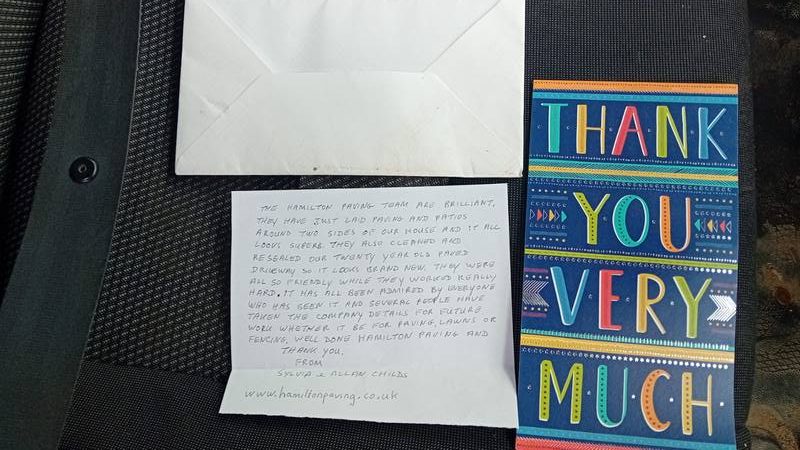 THE HAMILTON PAVING TEAM ARE BRILLIANT,
THEY HAVE JUST LAID PAVING AND PATIOS
AROUND TWO SIDES OF OUR HOUSE AND IT ALL
LOOKS SUPERB. THEY ALSO CLEANED AND
RESEALED OUR TWENTY YEAR OLD PAVED
DRIVEWAY SO IT LOOKS BRAND NEW. THEY WERE
ALL SO FRIENDLY WHILE THEY WORKED REALLY
HARD. IT HAS ALL BEEN ADMIRED BY EVERYONE
WHO HAS SEEN IT AND SEVERAL PEOPLE HAVE
TAKEN THE COMPANY DETAILS FOR FUTURE
WORK WHETHER IT BE FOR PAVING, LAWNS OR
FENCING, WELL DONE HAMILTON PAVING AND
THANK YOU,
FROM
SYLVIA & ALLAN CHILDS
www.hamiltonpaving.co.uk
THANK
YOU
VERY
MUCH